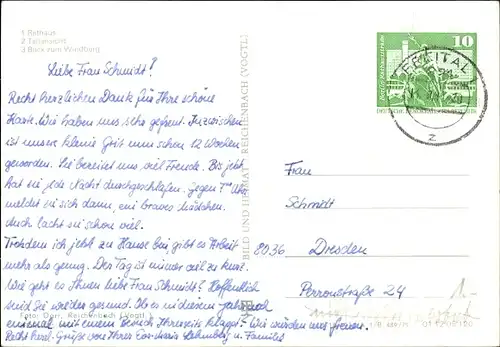 1 Rathaus
2 Teilansicht
3 Blick zum Windberg
Liebe Frau Schmidt!
Recht herzlichen Dank für Ihre schöne
Karte. Wir haben uns sehr gefreut. Inzwischen
ist unsere kleine Grit nun schon 12 Wochen
geworden. Sie bereitet uns viel Freude. Bis jetzt
hat sie jede Nacht durchgeschlafen. Gegen 7 Uhr
meldet sie sich dann, ein braves Mädchen.
Auch lacht sie schon viel.
Trotzdem ich jetzt zu Hause bin gibt es Arbeit
mehr als genug. Der Tag ist immer viel zu kurz.
Wie geht es Ihnen liebe Frau Schmidt? Hoffentlich
sind Sie wieder gesund. Ob es in diesem Jahr noch
einmal mit einem Besuch Ihrerseits klappt? Wir würden uns freuen.
Recht herzl. Grüße von Ihrer u. Familie
BILD UND HEIMAT REICHENBACH (VOGTL)
10
FREITAL
2
Frau
Schmidt
8036 Dresden
Perronstraße 24
Foto: Darr, Reichenbach (Vogtl.)